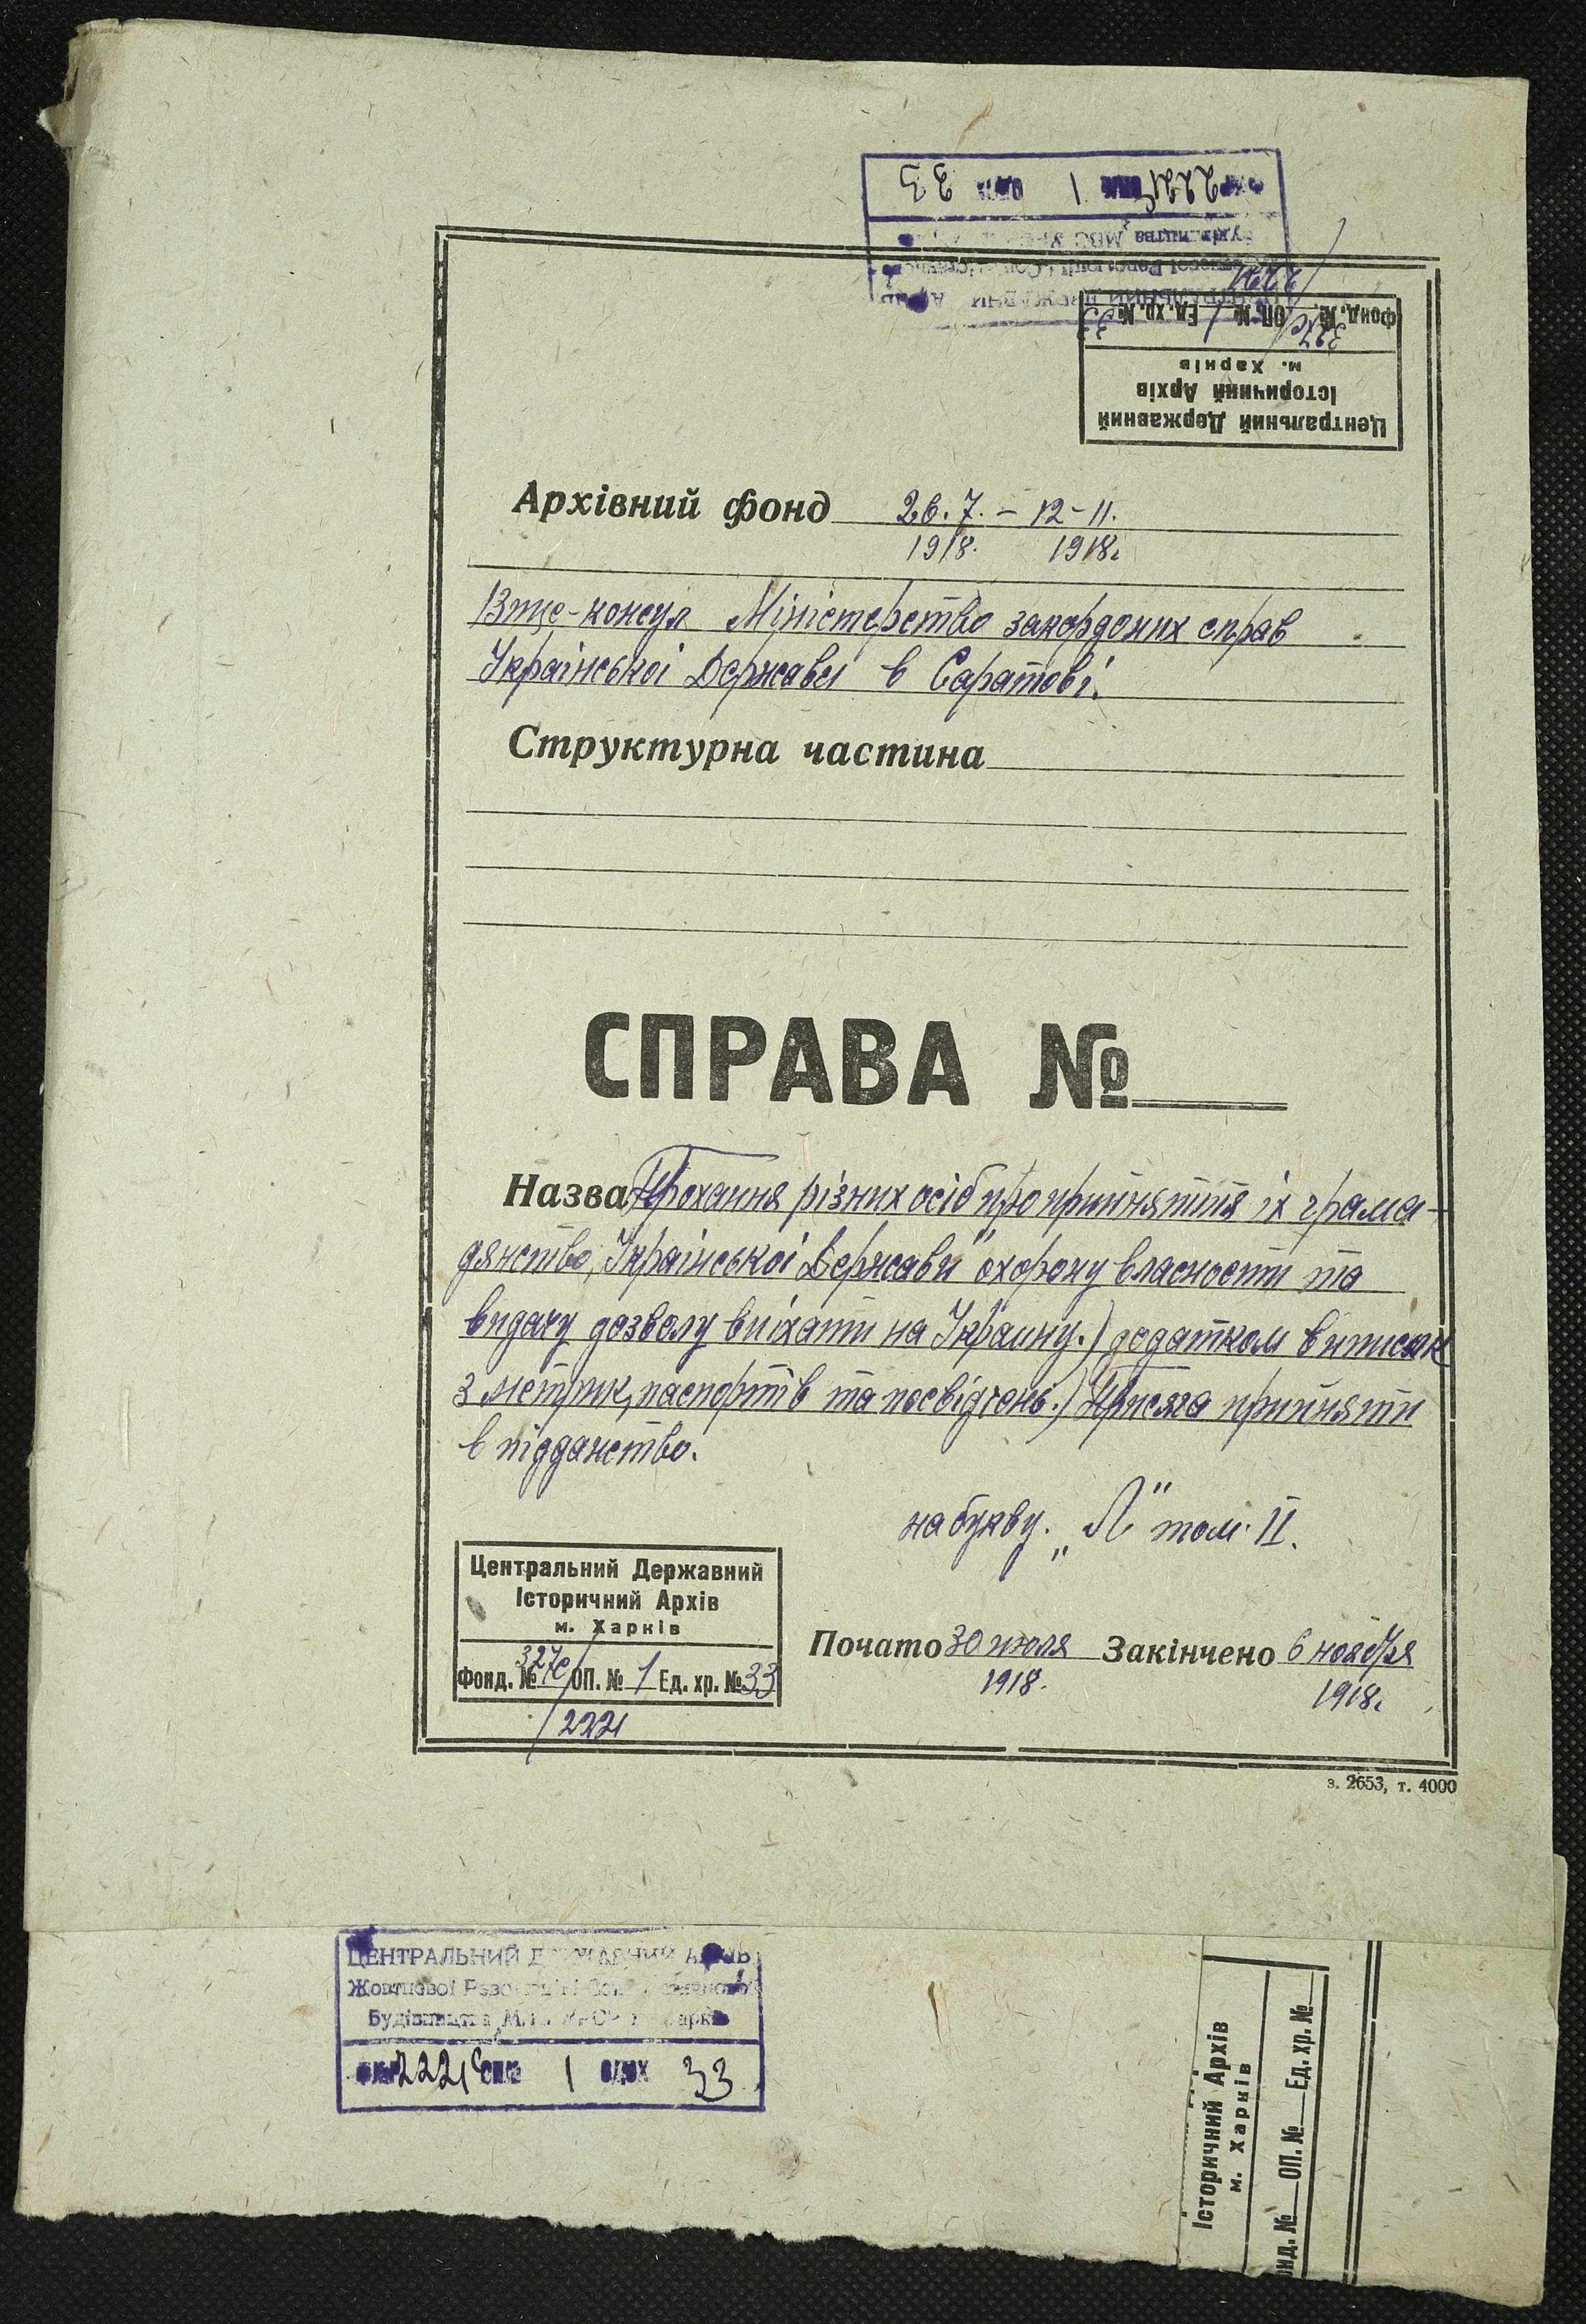 2221с 1 33
2221
Фонд. № 327с ОП. № 1 Ед. хр. № 33
м. Харків
Історичний Архів
Центральний Державний
Архівний фонд 26.7. – 12-11.
1918. 1918г
Віце-консул Міністерство закордоних справ
Української Держави в Саратові.
Структурна частина
СПРАВА №
Назва Прохання різних осіб про прийняття іх грама-
дянство „Української Держави" охорону власности та
видачу дозволу виїхати на Украину.) додатком виписок
з метрик, паспортів та посвідчень.) Присяга прийняти
в підданство.
на букву. „Л" том. II.
Центральний Державний
Історичний Архів
м. Харків
Фонд. № 327с ОП. № 1 Ед. хр. № 33
2221
Почато 30 июля Закінчено 6 ноября
1918. 1918г
з. 2653, т. 4000
ЦЕНТРАЛЬНИЙ ДЕРЖАВНИЙ АРХІВ
Жовтневої Революції
Будівництва
2221с 1 33
Історичний Архів
м. Харків
ОП. № Ед. хр. №